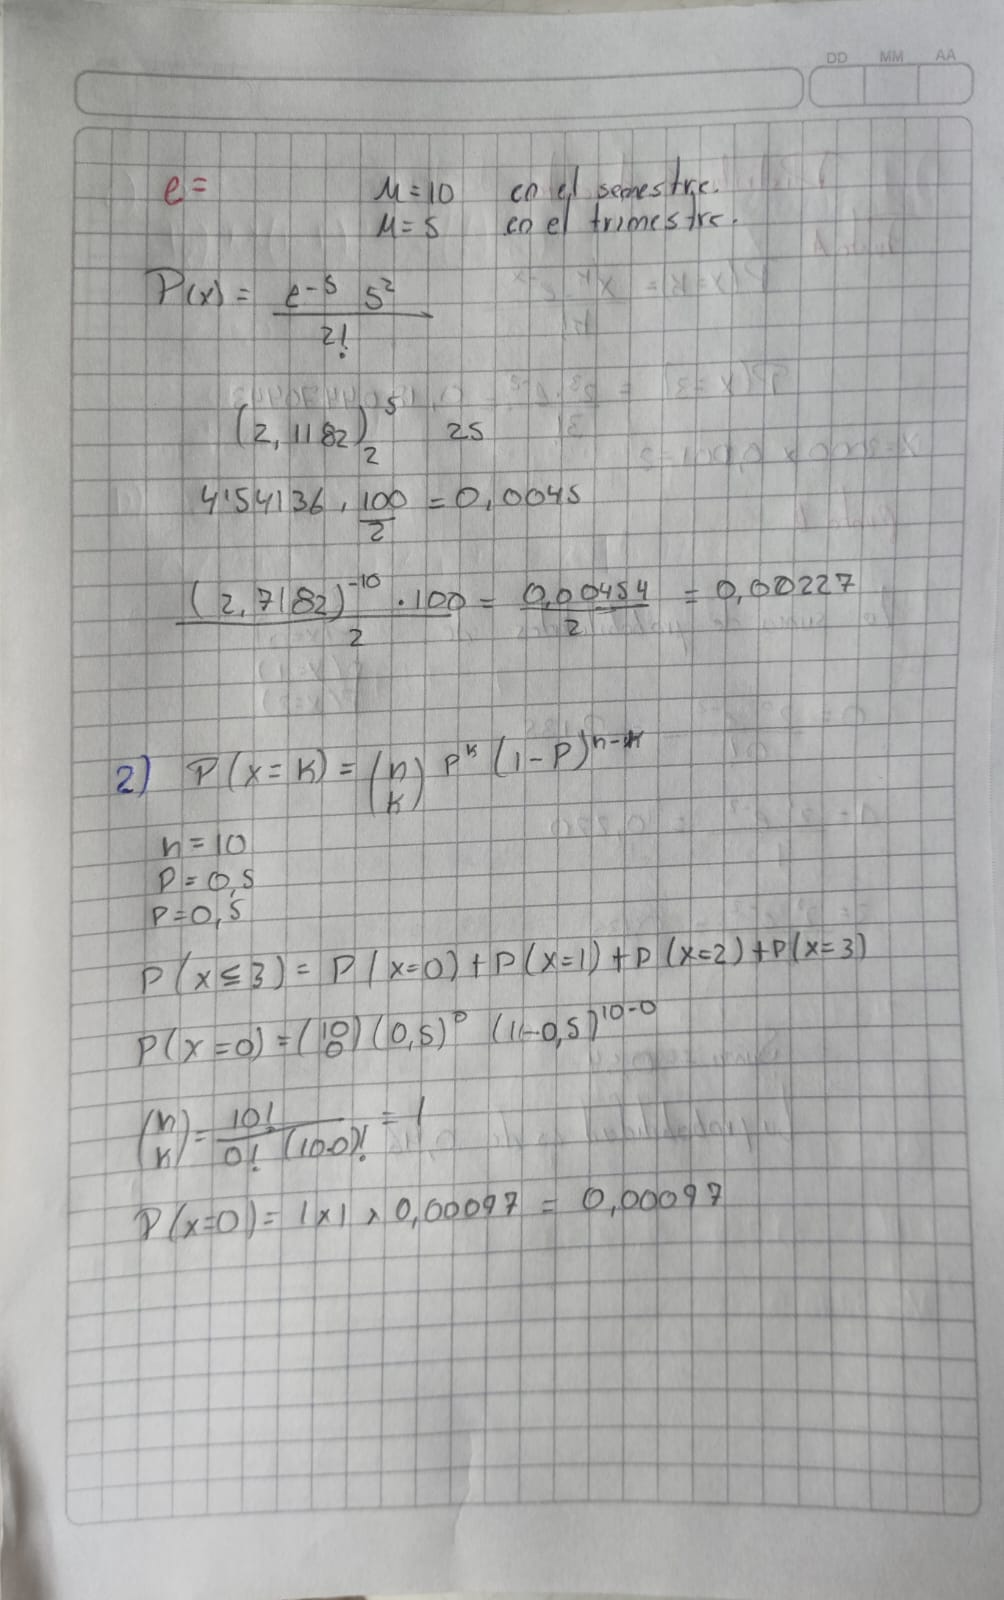 DD MM AA
e= M=10 en el semestre.
M=5 en el trimestre.
P(x) = e⁻⁵ 5² / 2!
(2,1182)⁵ 25
2
4'54136 · 100/2 = 0,0045
(2,7182)⁻¹⁰ · 100 / 2 = 0,00454 / 2 = 0,00227
2) P(x=k) = (n k) pᵏ (1-P)ⁿ⁻ᵏ
n=10
P=0,5
P=0,5
P(x≤3) = P(x=0)+P(x=1)+P(x=2)+P(x=3)
P(x=0)=(10 0)(0,5)⁰ (1-0,5)¹⁰⁻⁰
(n k) = 10! / 0! (10-0)! = 1
P(x=0)= 1x1 x 0,00097 = 0,00097